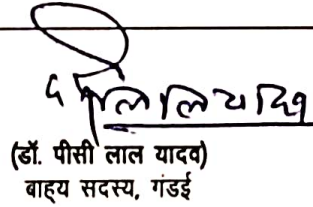 (डॉ. पीसी लाल यादव)
बाह्य सदस्य, गंडई